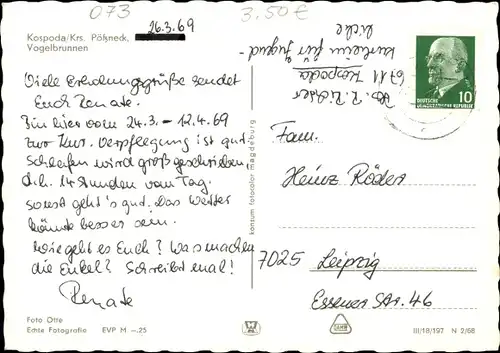 073
3.50€
26.3.69
Kospoda/Krs. Pößneck,
Vogelbrunnen
Viele Erholungsgrüße sendet
Euch Renate.
Bin hier vom 24.3. - 12.4.69
zur Kur. Verpflegung ist gut
Schlafen wird groß geschrieben,
d.h. 14 Stunden vom Tag.
sonst geht's gut. Das Wetter
könnte besser sein.
Wie geht es Euch? Was machen
die Enkel? Schreibt mal!
Renate
Foto Otte
Echte Fotografie EVP M –.25
kontum fotocolor magdeburg
6711 Kospoda
Kurheim für Jugend-
liche
10
DEUTSCHE
DEMOKRATISCHE REPUBLIK
Fam.
Heinz Röder
7025 Leipzig
Essener Str. 46
III/18/197 N 2/68